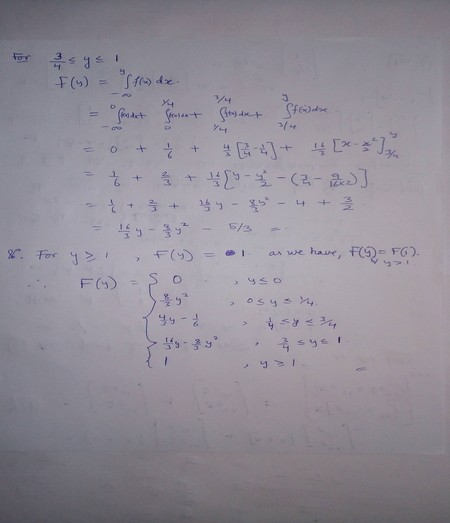 For 3/4 ≤ y ≤ 1
F(y) = ∫_{-∞}^{y} f(x) dx.
= ∫_{-∞}^{0} f(x) dx + ∫_{0}^{1/4} f(x) dx + ∫_{1/4}^{3/4} f(x) dx + ∫_{3/4}^{y} f(x) dx
= 0 + 1/6 + 4/3 [3/4 - 1/4] + 16/3 [x - x²/2]_{3/4}^{y}
= 1/6 + 2/3 + 16/3 [y - y²/2 - (3/4 - 9/16×2)]
= 1/6 + 2/3 + 16/3 y - 8/3 y² - 4 + 3/2
= 16/3 y - 8/3 y² - 5/3 =
For y ≥ 1, F(y) = 1 as we have, F(y) = F(1).
∀ y > 1
∴ F(y) = { 0 , y ≤ 0
8/3 y² , 0 ≤ y ≤ 1/4.
4/3 y - 1/6 , 1/4 ≤ y ≤ 3/4
16/3 y - 8/3 y² , 3/4 ≤ y ≤ 1
1 , y ≥ 1
=